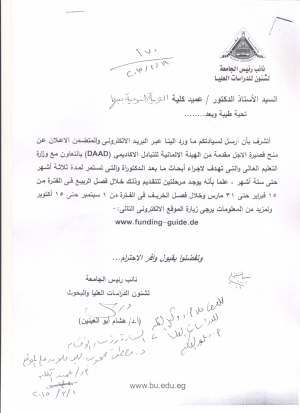 نائب رئيس الجامعة
لشئون الدراسات العليا
السيد الأستاذ الدكتور / عميد كلية
تحية طيبة وبعد........
أتشرف بأن أرسل لسيادتكم ما ورد الينا عبر البريد الالكترونى والمتضمن الاعلان عن
منح قصيرة الاجل مقدمة من الهيئة الالمانية للتبادل الاكاديمي (DAAD) بالتعاون مع وزارة
التعليم العالى والتى تهدف لاجراء أبحاث ما بعد الدكتوراة والتى تستمر لمدة ثلاثة أشهر
حتى ستة أشهر ، علما بأنه يوجد مرحلتين للتقديم وذلك خلال فصل الربيع فى الفترة من
١٥ فبراير حتى ٣١ مارس وخلال فصل الخريف فى الفترة من ١ سبتمبر حتى ١٥ أكتوبر
ولمزيد من المعلومات يرجى زيارة الموقع الالكترونى التالى:-
www.funding-guide.de
وتفضلوا بقبول وافر الاحترام...
نائب رئيس الجامعة
لشئون الدراسات العليا والبحوث
(أ.د/ هشام أبو العينين)
www.bu.edu.eg